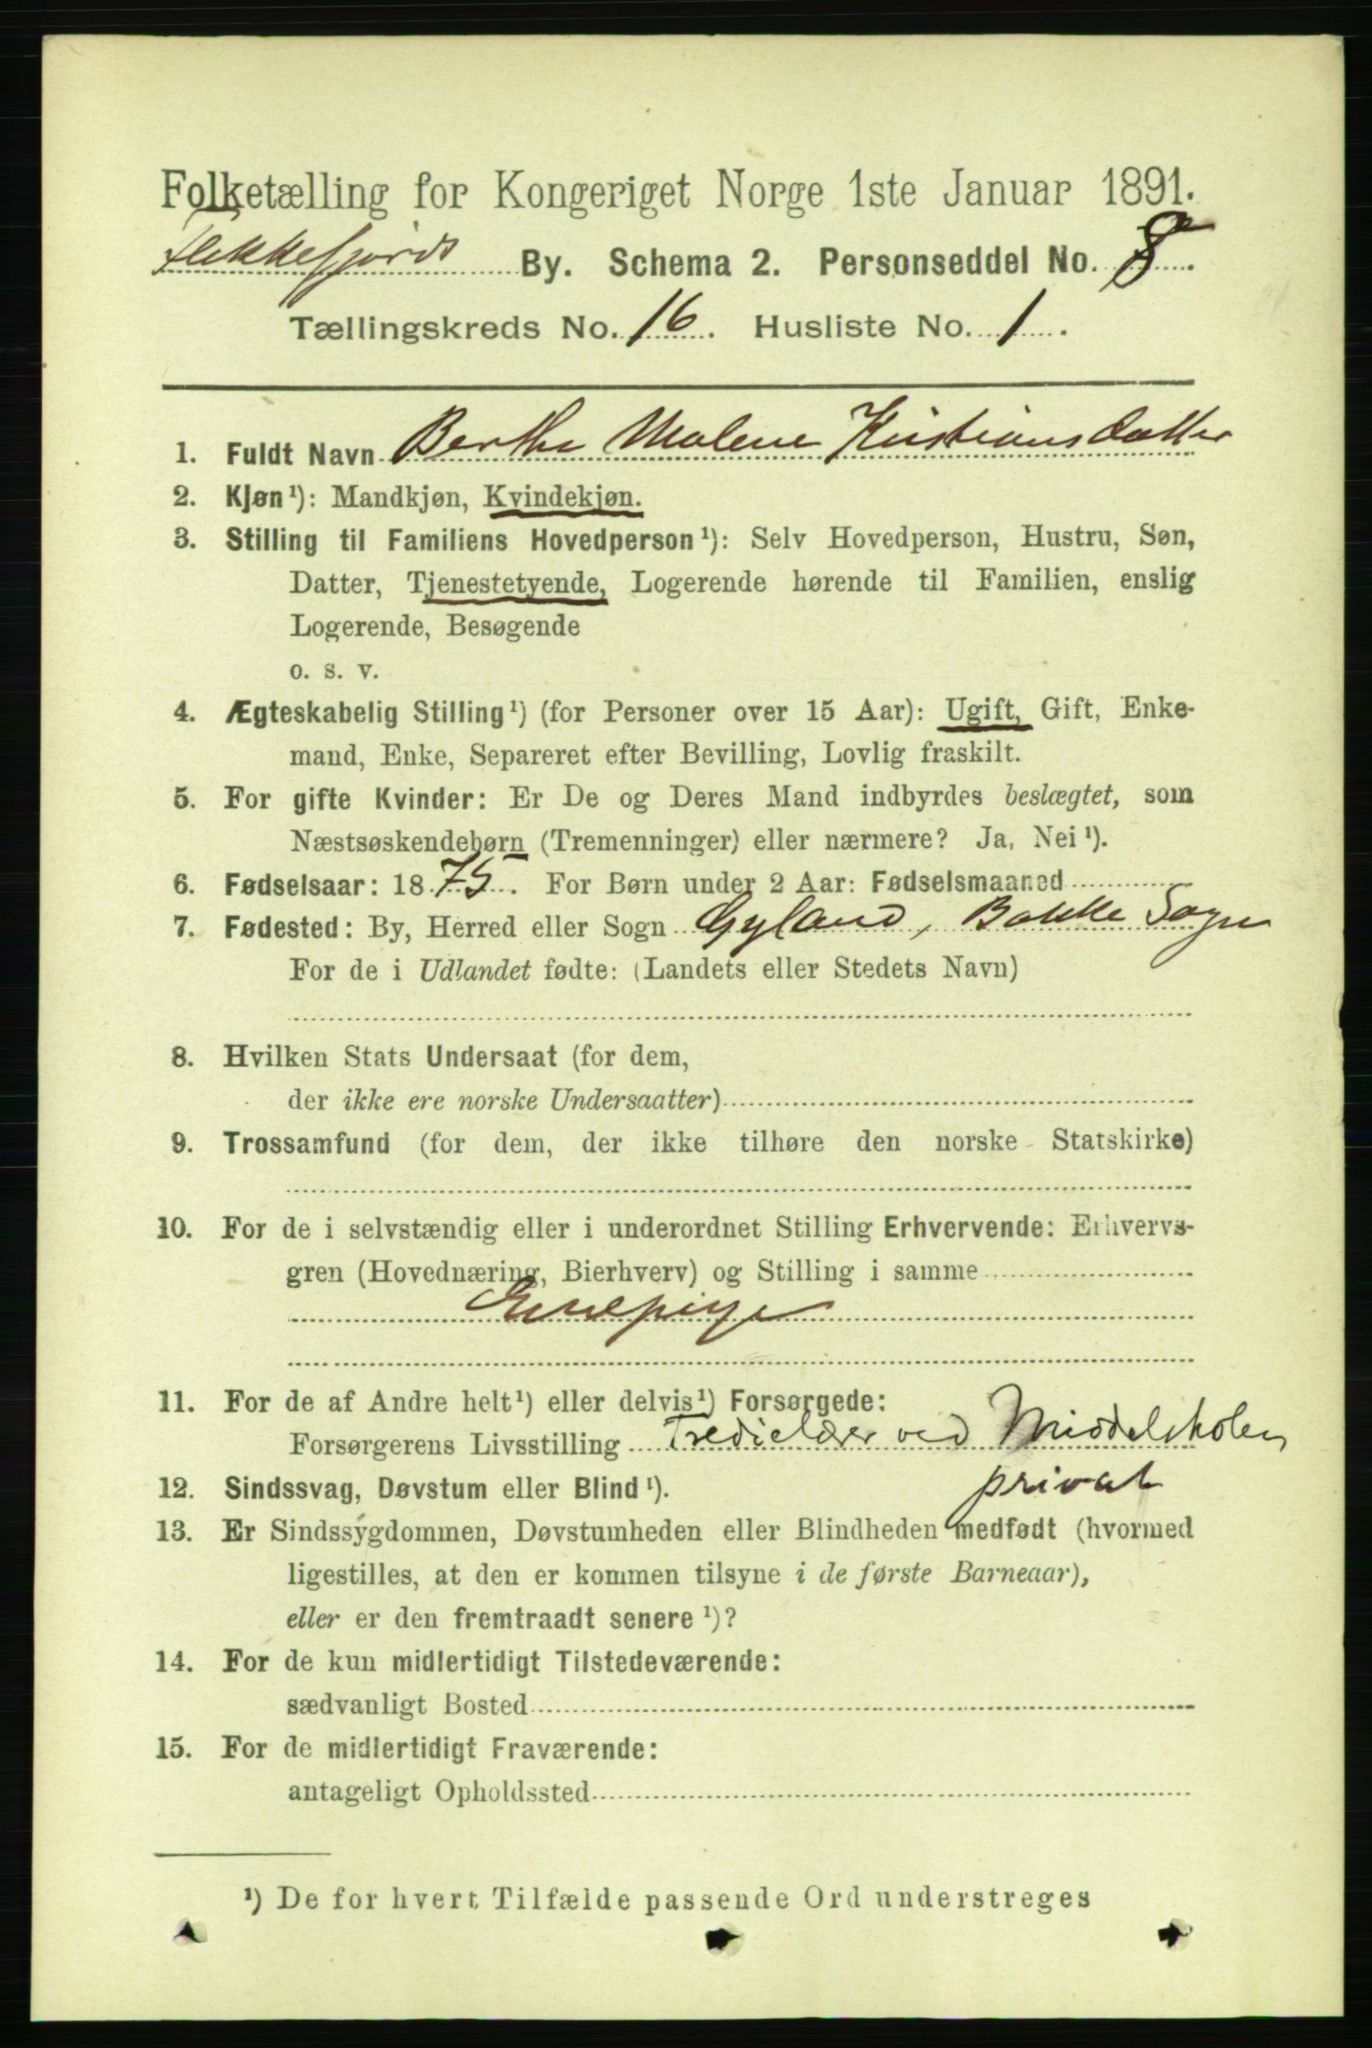 Folketælling for Kongeriget Norge 1ste Januar 1891.
Flekkefjords By. Schema 2. Personseddel No. 8.
Tællingskreds No. 16. Husliste No. 1.
1. Fuldt Navn Berthe Malene Kristiansdatter
2. Kjøn¹): Mandkjøn, Kvindekjøn.
3. Stilling til Familiens Hovedperson¹): Selv Hovedperson, Hustru, Søn,
Datter, Tjenestetyende, Logerende hørende til Familien, enslig
Logerende, Besøgende
o. s. v.
4. Ægteskabelig Stilling¹) (for Personer over 15 Aar): Ugift, Gift, Enke-
mand, Enke, Separeret efter Bevilling, Lovlig fraskilt.
5. For gifte Kvinder: Er De og Deres Mand indbyrdes beslægtet, som
Næstsøskendebørn (Tremenninger) eller nærmere? Ja, Nei¹).
6. Fødselsaar: 1875. For Børn under 2 Aar: Fødselsmaaned
7. Fødested: By, Herred eller Sogn Gyland, Bakke Sogn
For de i Udlandet fødte: (Landets eller Stedets Navn)
8. Hvilken Stats Undersaat (for dem,
der ikke ere norske Undersaatter)
9. Trossamfund (for dem, der ikke tilhøre den norske Statskirke)
10. For de i selvstændig eller i underordnet Stilling Erhvervende: Erhvervs-
gren (Hovednæring, Bierhverv) og Stilling i samme
Enepige
11. For de af Andre helt¹) eller delvis¹) Forsørgede:
Forsørgerens Livsstilling Tredielærer ved Middelskolen
privat
12. Sindssvag, Døvstum eller Blind¹).
13. Er Sindssygdommen, Døvstumheden eller Blindheden medfødt (hvormed
ligestilles, at den er kommen tilsyne i de første Barneaar),
eller er den fremtraadt senere¹)?
14. For de kun midlertidigt Tilstedeværende:
sædvanligt Bosted
15. For de midlertidigt Fraværende:
antageligt Opholdssted
¹) De for hvert Tilfælde passende Ord understreges